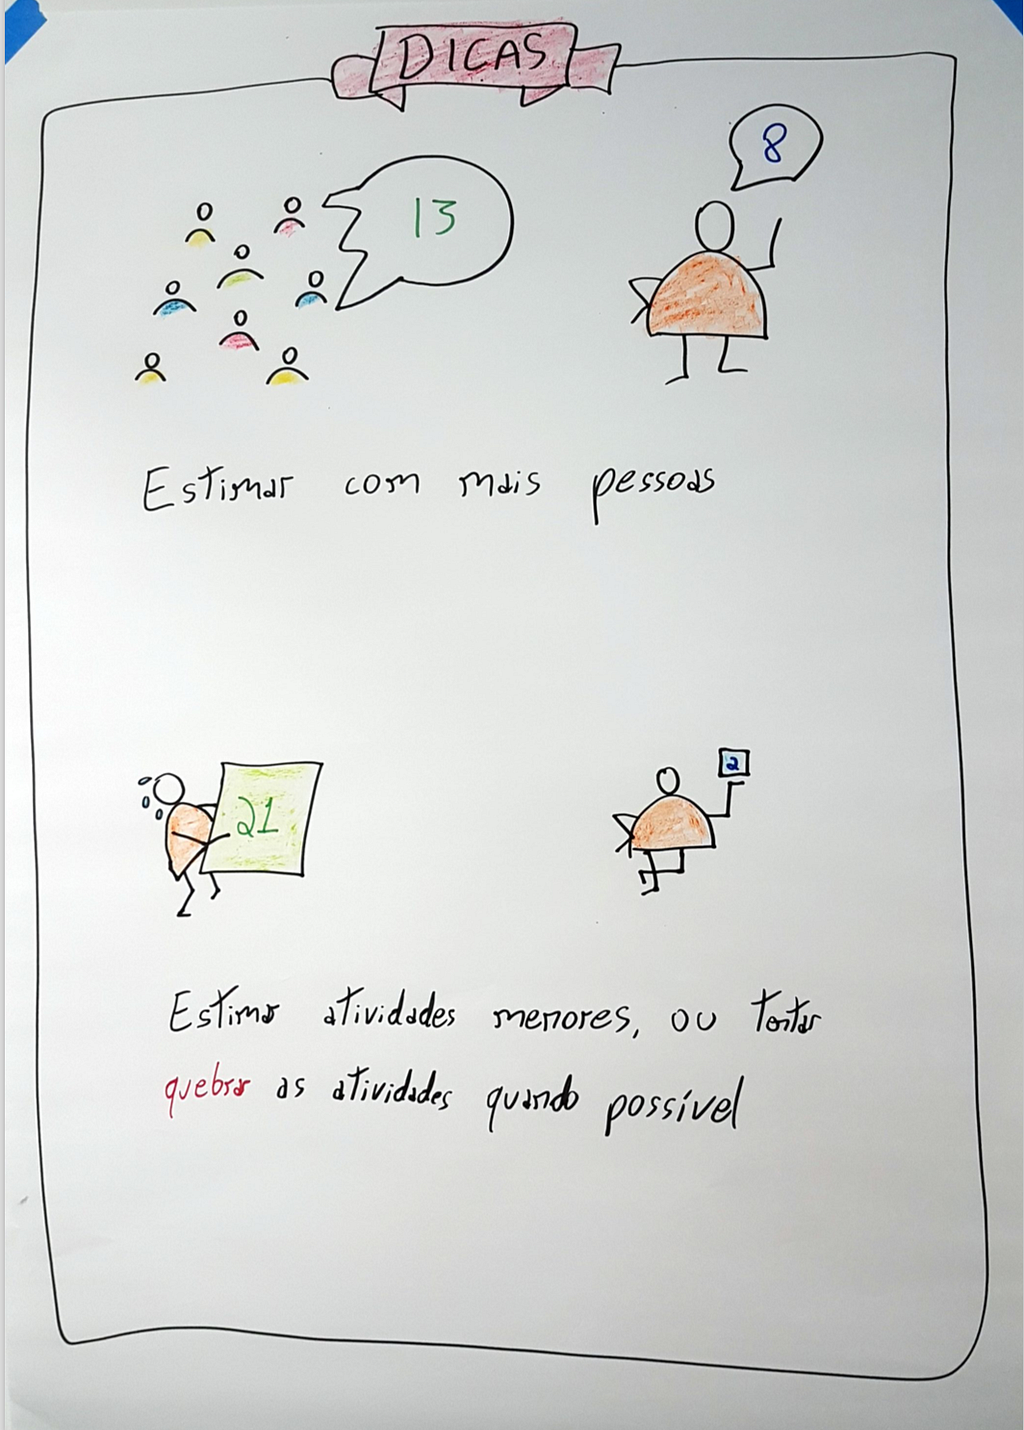 DICAS
8
13
Estimar com mais pessoas
21
2
Estimar atividades menores, ou tentar
quebrar as atividades quando possível